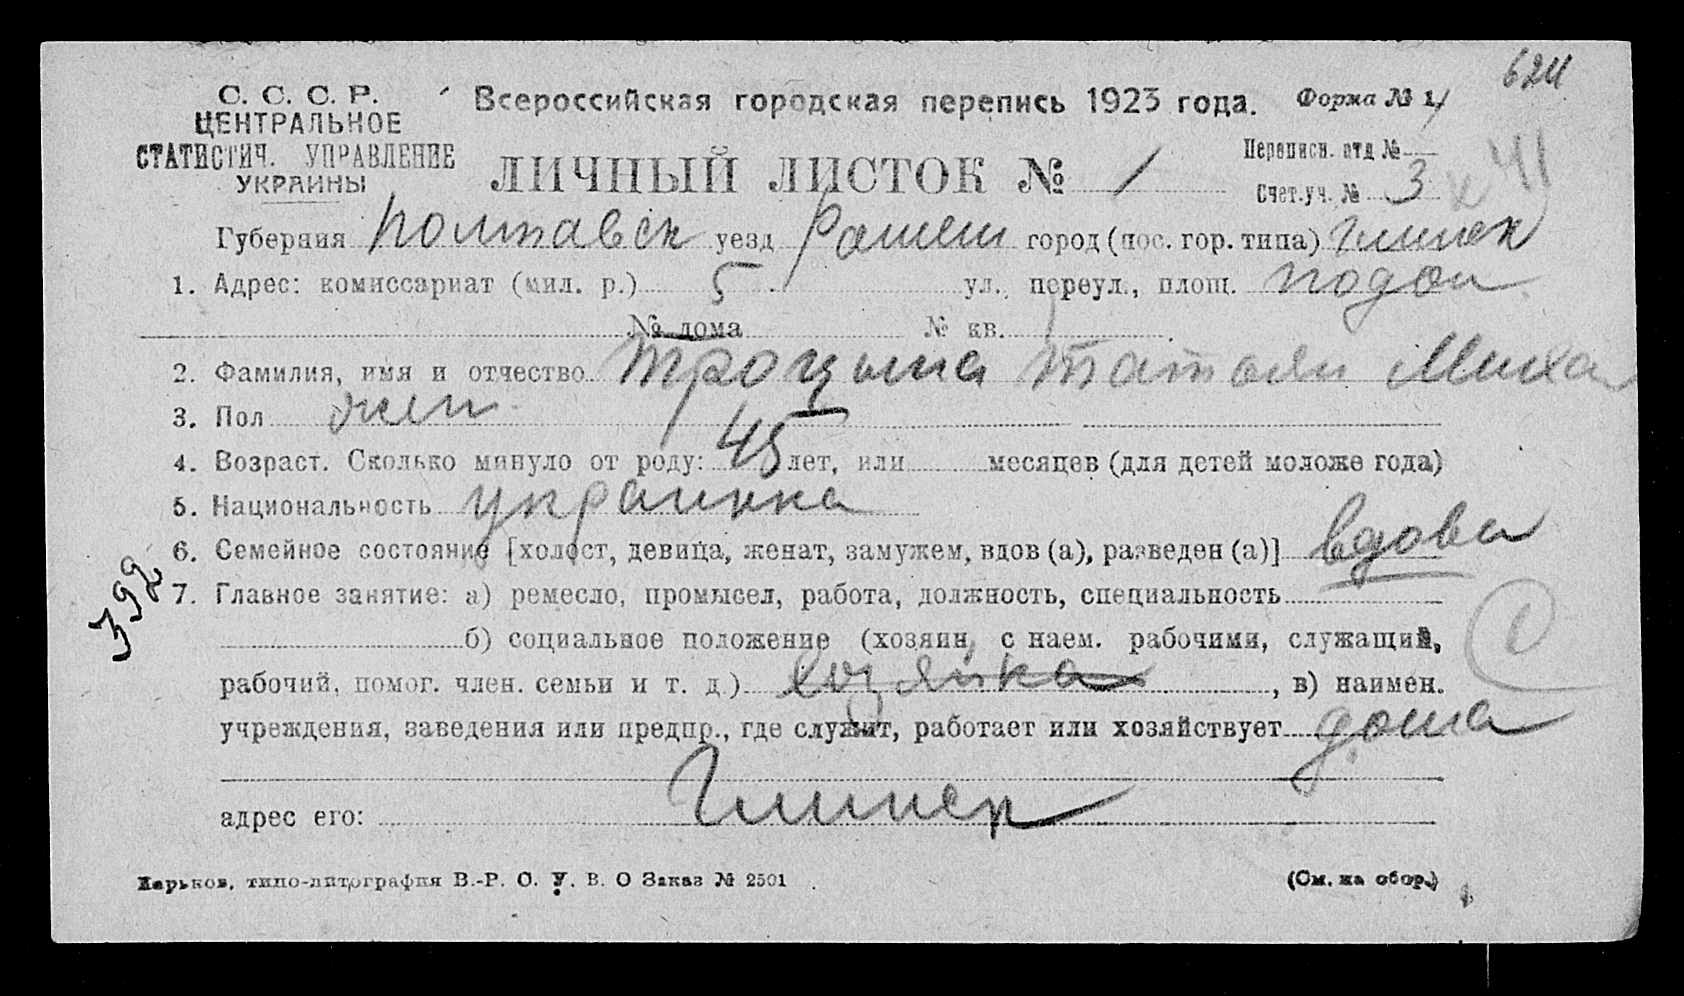 624
С. С. С. Р.
ЦЕНТРАЛЬНОЕ
СТАТИСТИЧ. УПРАВЛЕНИЕ
УКРАИНЫ
Всероссийская городская перепись 1923 года.
Форма № 1
ЛИЧНЫЙ ЛИСТОК № 1
Переписн. отд №
Счет.уч. № 3
41
Губерния Полтавск уезд Рашеш город (пос. гор. типа) Глинск
1. Адрес: комиссариат (мил. р.) 5 ул., переул., площ. Подол
№ дома № кв.
2. Фамилия, имя и отчество Троцына Татьян Миха
3. Пол жен
4. Возраст. Сколько минуло от роду: 45 лет, или месяцев (для детей моложе года)
5. Национальность украинка
6. Семейное состояние [холост, девица, женат, замужем, вдов (а), разведен (а)] вдова
392
7. Главное занятие: а) ремесло, промысел, работа, должность, специальность
б) социальное положение (хозяин с наем. рабочими, служащий,
рабочий, помог. член. семьи и т. д.) хозяйка, в) наимен.
учреждения, заведения или предпр., где служит, работает или хозяйствует дома
Глинск
адрес его:
Харьков, типо-литография В.-Р. О. У. В. О Заказ № 2501
(См. на обор.)